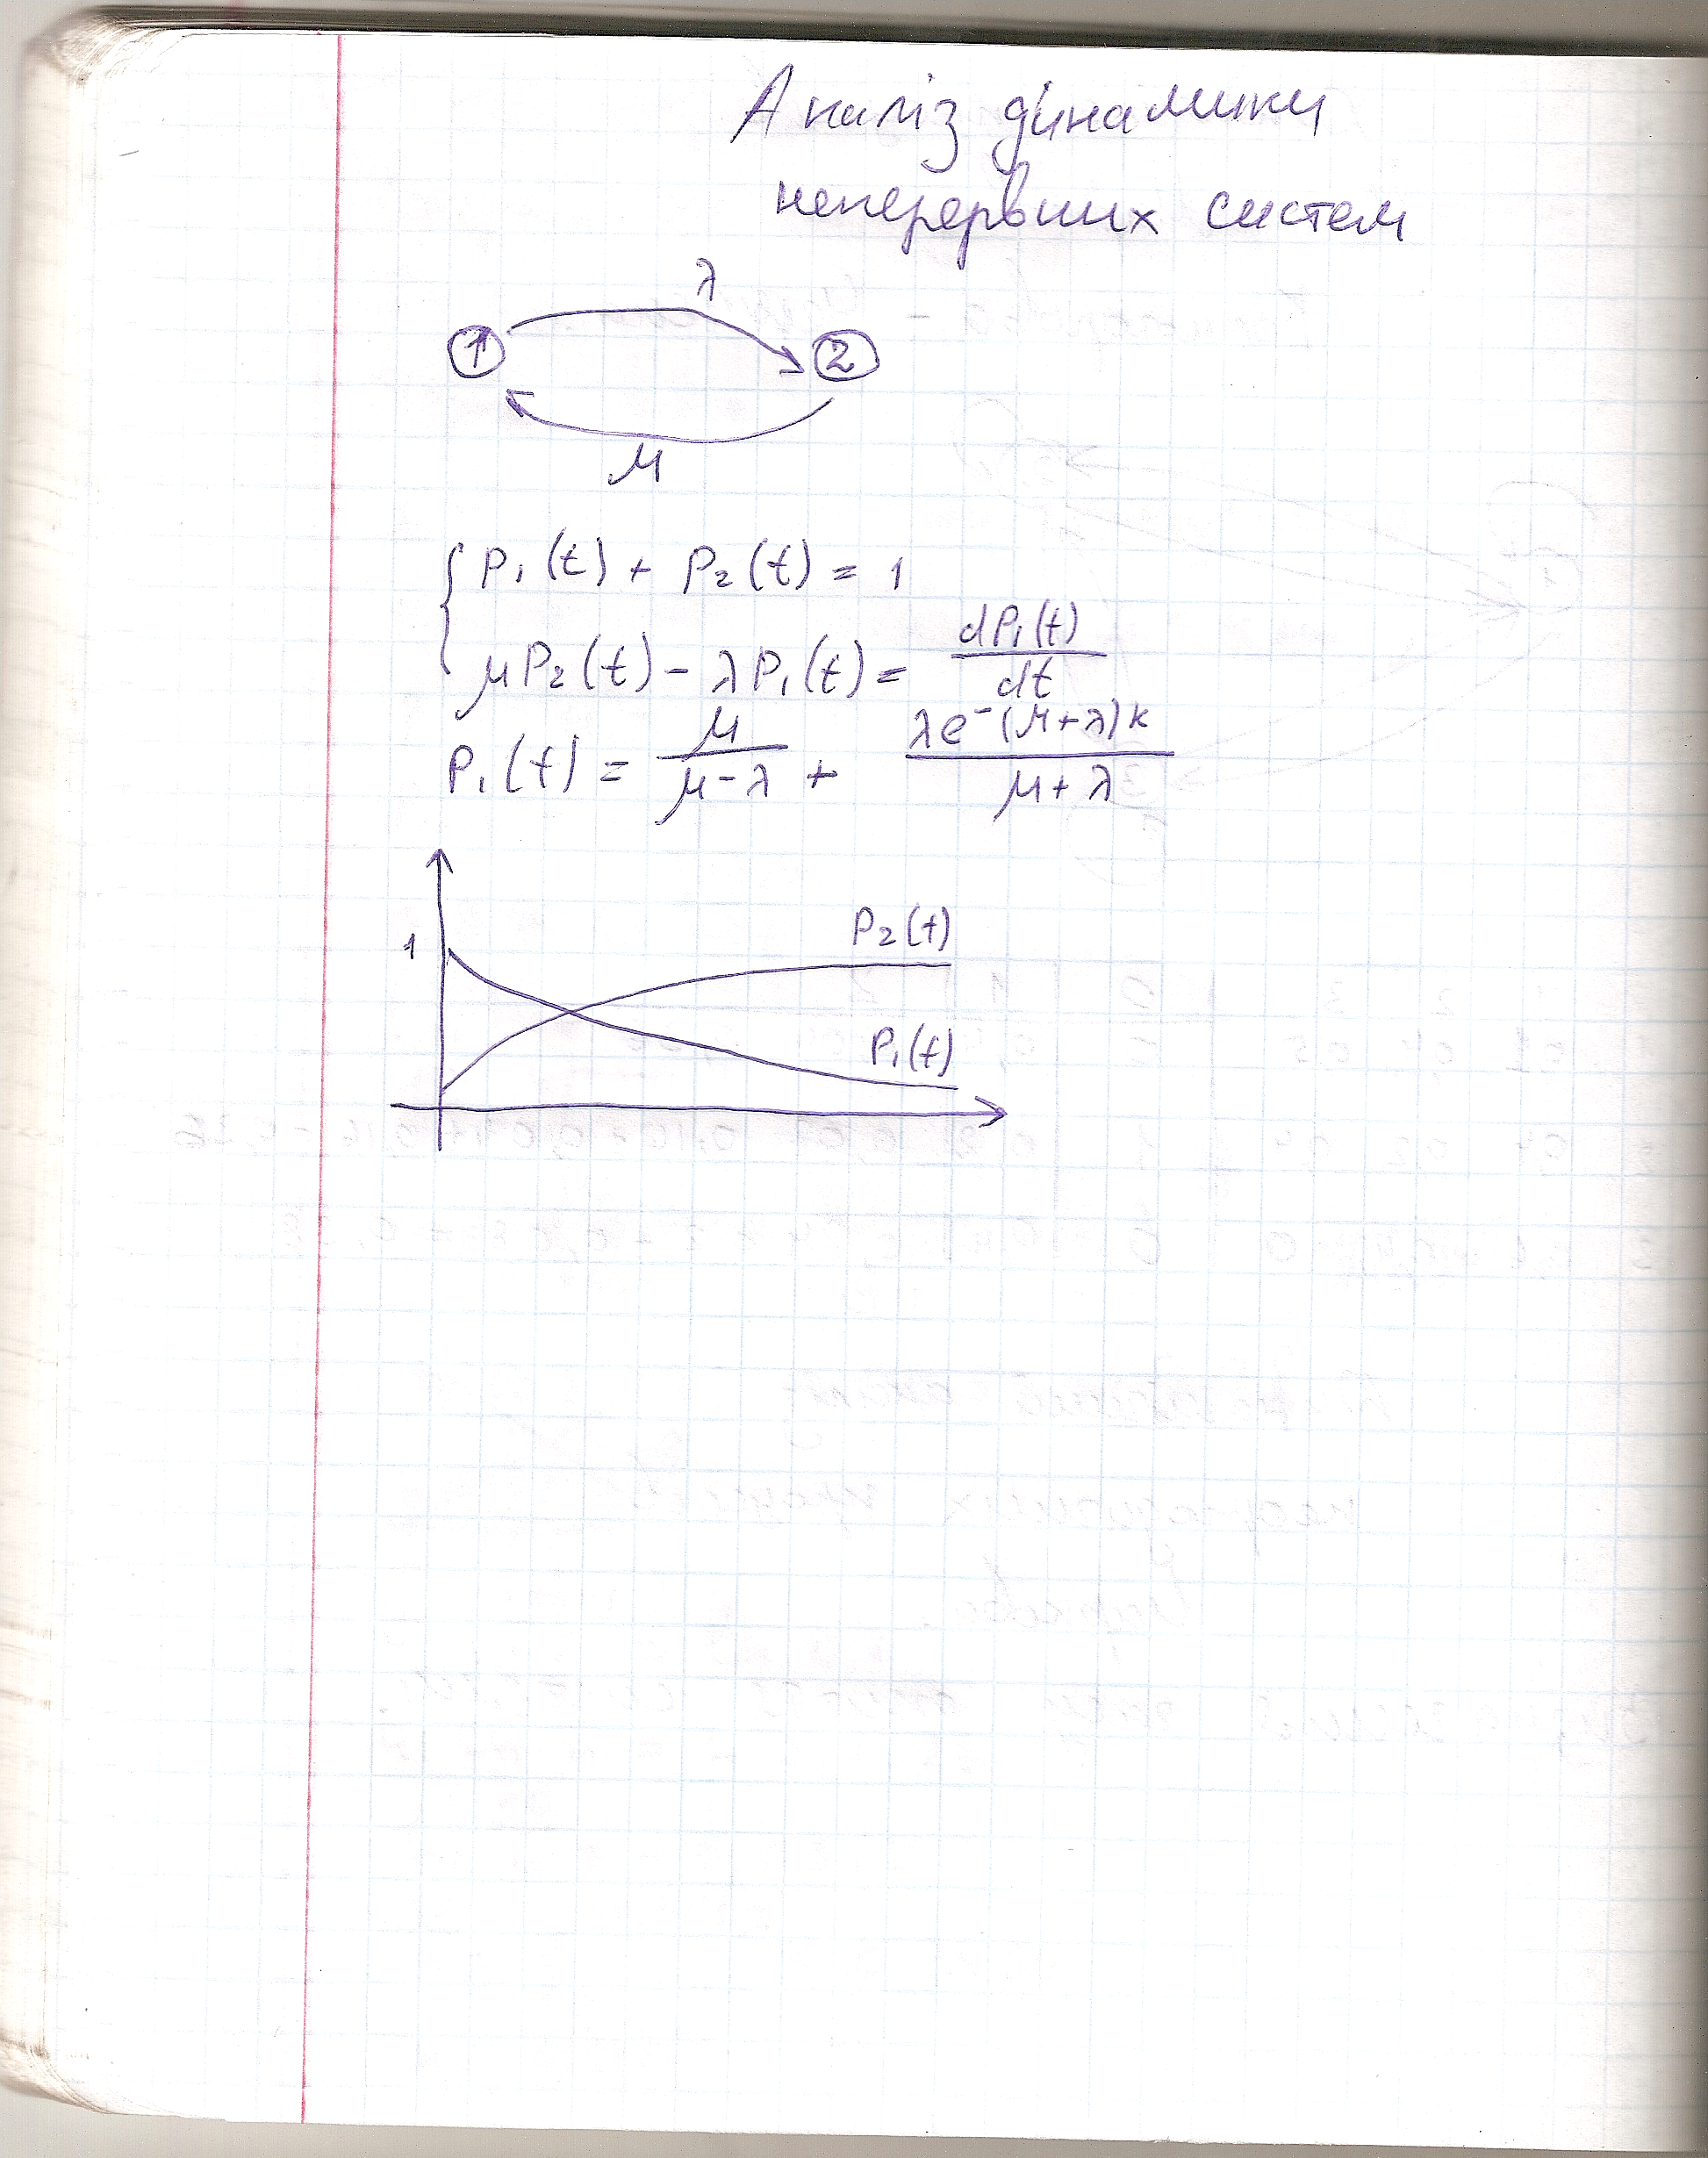 Аналіз динамики
неперервних систем
λ
1 2
μ
P₁(t) + P₂(t) = 1
μP₂(t) - λP₁(t) = dP₁(t)/dt
P₁(t) = μ/(μ-λ) + λe^-(μ+λ)k/(μ+λ)
P₂(t)
1
P₁(t)